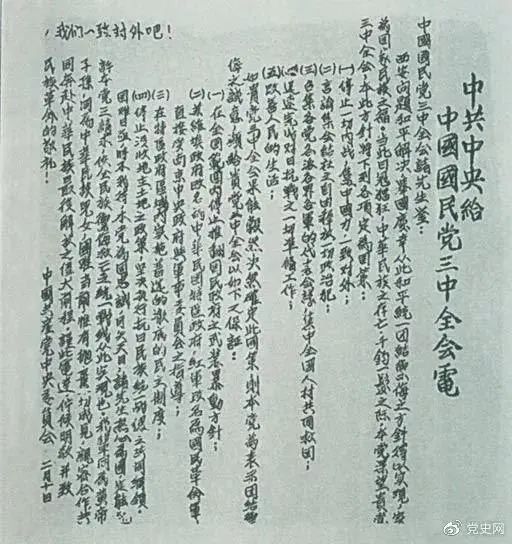 中共中央給
中國國民党三中全会電
中國國民党三中全会諸先生鑒：
西安問題和平解決，舉國慶幸，從此和平統一團結禦侮之方針得以實現，实
為囯家民族之福。當此日寇猖狂，中華民族之存亡千鈞一髮之際，本党深望貴党
三中全会，本此方針，將下列各項定為囯策：
(一)停止一切內戰，集中國力，一致對外；
(二)言論集会結社之自由，釋放一切政治犯；
(三)召集各党各派各界各軍的代表会議，集中全國人材，共同救囯；
(四)迅速完成對日抗戰之一切準備工作；
(五)改善人民的生活；
如貴党三中全会果能毅然決然確定此國策，則本党為表示團結禦
侮之誠意，願給貴党三中全会以如下之保証：
(一)在全國範圍內停止推翻囯民政府之武裝暴動方針；
(二)蘇維埃政府改名為中華民囯特區政府，紅軍改名為國民革命軍，
直接受南京中央政府與軍事委員会之指導；
(三)在特區政府區域內實施普選的徹底的民主制度；
(四)停止没收地主土地之政策，堅決执行抗日民族統一戰線之共同綱領。
囯難日亟，時不我待，本党為囯忠誠可矢天日，諸先生热心為國，定能允
許本党之請求，使全民族禦侮救亡之統一戰線從此实現也。我輩同為黄帝
子孫，同為中華民族兒女，國難當前，惟有抛棄一切成見，親密合作，共
同奔赴中華民族最後解放之偉大前程。謹此電達，佇候明教，並致
民族革命的敬礼！
中國共產党中央委員会 二月十日
，我們一致對外吧！
党史网